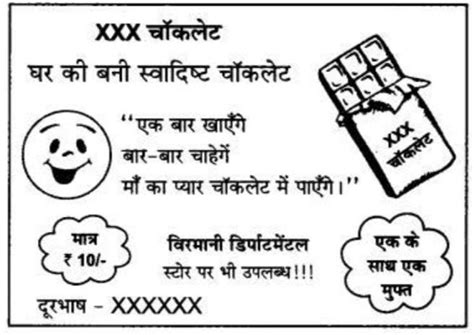 XXX चॉकलेट
घर की बनी स्वादिष्ट चॉकलेट
“एक बार खाएँगे
बार-बार चाहेगें
माँ का प्यार चॉकलेट में पाएँगे।”
XXX
चॉकलेट
मात्र
₹ 10/-
विरमानी डिर्पाटमेंटल
स्टोर पर भी उपलब्ध!!!
एक के
साथ एक
मुफ्त
दूरभाष - XXXXXX